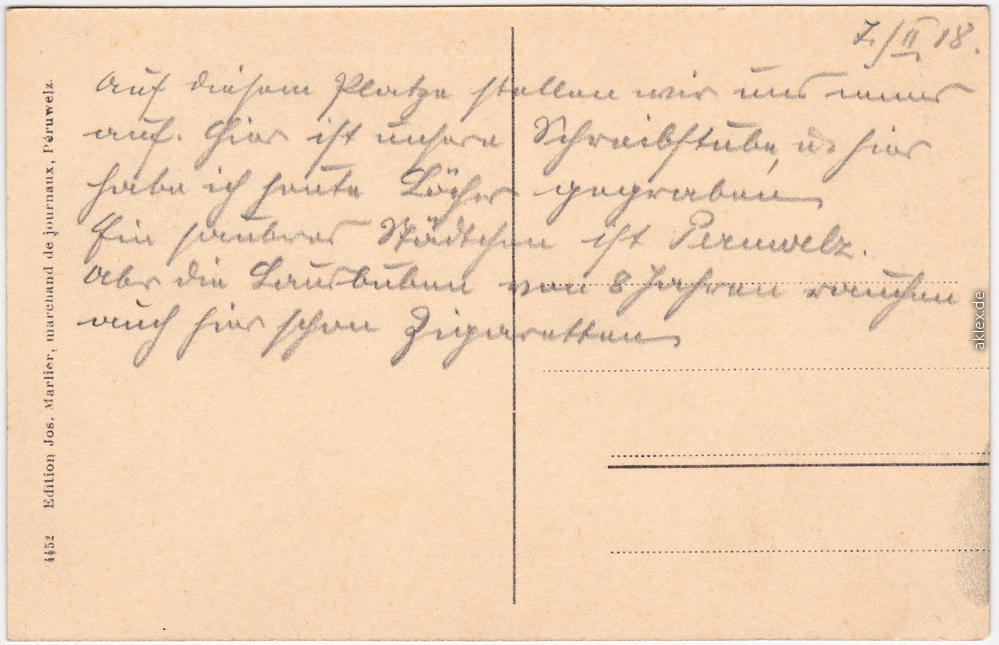 7./II 18.
Auf diesem Platze stellen wir uns immer
auf. Hier ist unsere Schreibstube, u. hier
habe ich heute Löcher gegraben
Ein saubres Städtchen ist Peruwelz.
Aber die Lausbuben von 8 Jahren rauchen
auch hier schon Zigaretten
4452 Edition Jos. Marlier, marchand de journaux, Péruwelz.
aklex.de